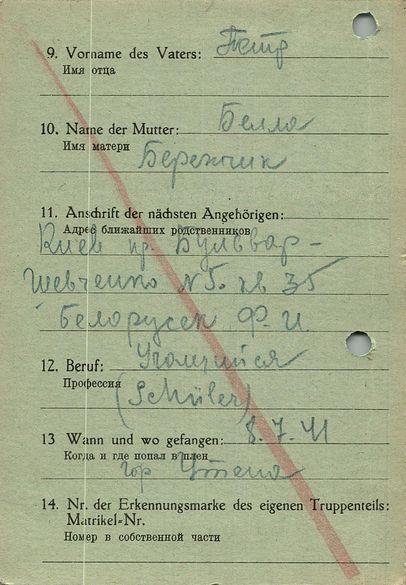 9. Vorname des Vaters: Петр
Имя отца
10. Name der Mutter: Белла
Имя матери Беренчик
11. Anschrift der nächsten Angehörigen:
Адрес ближайших родственников
Киев пр. Бульвар-
Шевченко N 5. кв 35
Белорусек Ф. И.
12. Beruf: Учащийся
Профессия (Schüler)
13 Wann und wo gefangen: 8.7.41
Когда и где попал в плен
гор Утена
14. Nr. der Erkennungsmarke des eigenen Truppenteils:
Matrikel-Nr.
Номер в собственной части